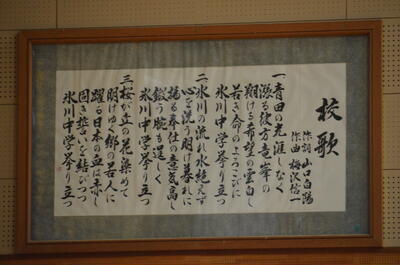 校歌
作詞 山口白陽
作曲 梅沢信一
一、青田の光涯なく
漲る彼方竜峯の
翔ける希望の雲白し
若き命のよろこびに
氷川中学挙り立つ
二、氷川の流れ水絶えず
心を洗う明け暮れに
揚る奉仕の意気高し
鍛う腕も逞しく
氷川中学挙り立つ
三、桜が丘の花染めて
明けゆく郷の若人に
躍る日本の血は赤し
固き誓いを結びつつ
氷川中学挙り立つ